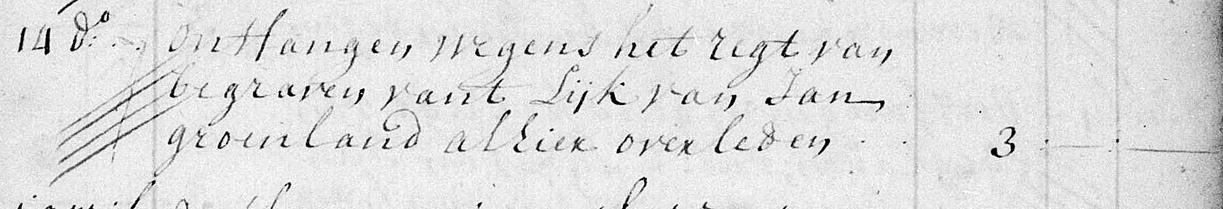 14 do ontfangen wegens het regt van
begraven vant Lijk van Jan
groenland alhier overleden 3 : — : —